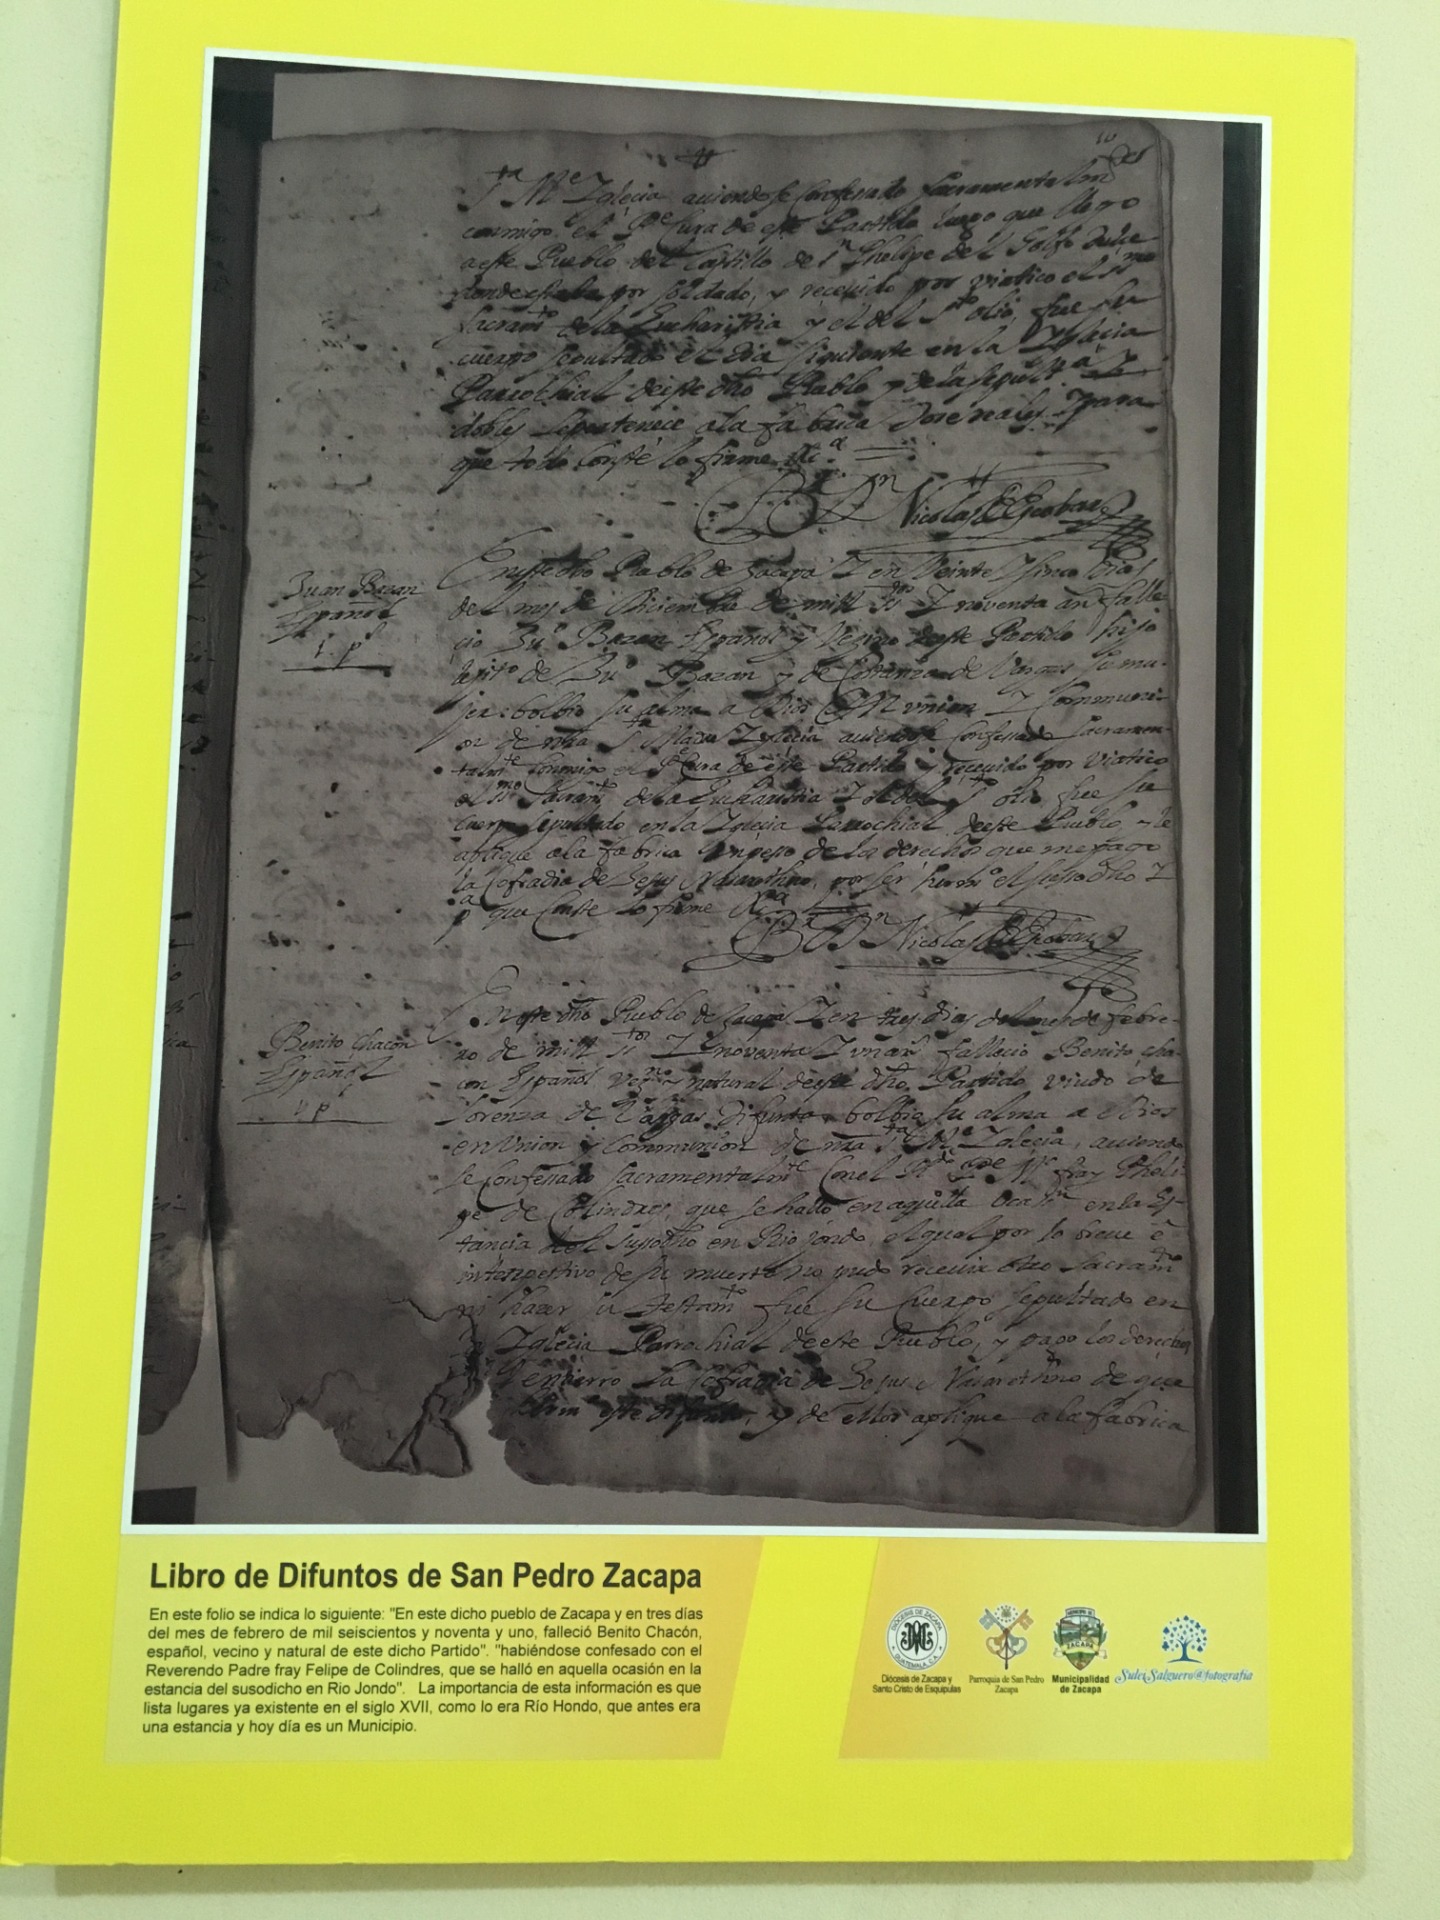 Sta Me Yglecia auiendose Confesado Sacramentalmte
conmigo el Pe Cura de este Partido luego que llego
a este Pueblo del Castillo de Sn Phelipe del Golfo dulce
donde estaba por soldado, y receuido por viatico el SSmo
Sacramto de la Eucharistia y el del Sto olio, fue su
cuerpo sepultado el dia siguiente en la Yglecia
Parrochial deeste dho Pueblo y de la sepultra
dobles le pertenece a la fabrica Dose reales. Y para
que todo Conste lo firme
Br Dn Nicolas de Escobar
Juan Bazan
Español
1. p
En este dho Pueblo de Zacapa Y en Veinte Y sinco dias
del mes de Diciembre de mill Y noventa an falle
cio Ju Bazan Español y Vezino deeste Partido hijo
lexito de Ju Bazan y de Costanza de Vargas su mu-
jer: bolbio su alma a Dios En Vnion Y Communi-
on de nra Sta Madre Yglecia auiendose Confesado Sacramen-
talmte Conmigo el Pe Cura de este Partido y receuido por viatico
el SSmo Sacramto de la Eucharistia Y el del Sto olio fue su
Cuerpo Sepultado en la Yglecia Parrochial deeste Pueblo, y le
aplique a la fabrica Vn peso de los derechos que me pago
la Cofradia de Jesus Nasareno, por ser hermo el susodho Y
pa que Conste lo firme
Br Dn Nicolas de Escobar
Benito Chacon
Español
1 p
En este dho Pueblo de Zacapa Y en tres dias del mes de febre-
ro de mill Y noventa Y vn an fallecio Benito Cha-
con Español vezno y natural deeste dho Partido viudo de
Lorenza de Vargas Difunta bolbio su alma a Dios
en Vnion y Communion de nra Sta Me Yglecia, auiendo
se Confesado Sacramentalmte Con el Rdo Pe fray Pheli-
pe de Colindres, que se hallo en aquella Ocasn en la Es-
tancia del susodho en Rio jondo, el qual por lo breue e
intenpestivo de su muerte no pudo receuir otro Sacramto
ni hazer su testamto fue su Cuerpo sepultado en
la Yglecia Parrochial deeste Pueblo, y pago los derechos
entierro la Cofradia de Jesus Nasareno de que
este difunto, y de ellos aplique a la fabrica
Libro de Difuntos de San Pedro Zacapa
En este folio se indica lo siguiente: "En este dicho pueblo de Zacapa y en tres días
del mes de febrero de mil seiscientos y noventa y uno, falleció Benito Chacón,
español, vecino y natural de este dicho Partido". "habiéndose confesado con el
Reverendo Padre fray Felipe de Colindres, que se halló en aquella ocasión en la
estancia del susodicho en Rio Jondo". La importancia de esta información es que
lista lugares ya existente en el siglo XVII, como lo era Río Hondo, que antes era
una estancia y hoy día es un Municipio.
DIÓCESIS DE ZACAPA
GUATEMALA, C.A.
Diócesis de Zacapa y
Santo Cristo de Esquipulas
Parroquia de San Pedro
Zacapa
ZACAPA
Municipalidad
de Zacapa
Sulci Salguero@fotografía